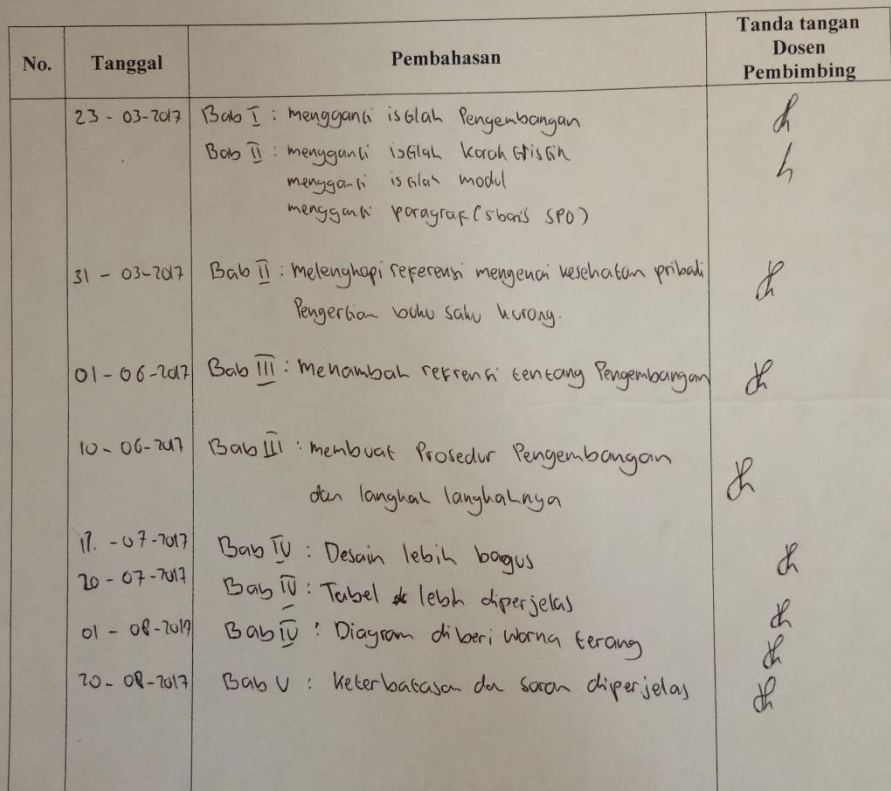 No. Tanggal Pembahasan Tanda tangan
Dosen
Pembimbing
23 - 03-2017 Bab I : mengganti istilah Pengembangan
Bab II : mengganti istilah karakteristik
mengganti istilah modul
mengganti paragraf
31 - 03-2017 Bab II : Melengkapi referensi mengenai kesehatan pribadi
Pengertian buku saku kurang.
01 - 06-2017 Bab III : Menambah refrensi tentang Pengembangan
10 - 06-2017 Bab III : membuat Prosedur Pengembangan
dan langkah langkahnya
-07-2017 Bab IV : Desain lebih bagus
20 - 07-2017 Bab IV : Tabel lebh diperjelas
01 - 08-2017 Bab IV : Diagram diberi warna terang
20 - 08-2017 Bab V : Keterbatasan da saran diperjelas